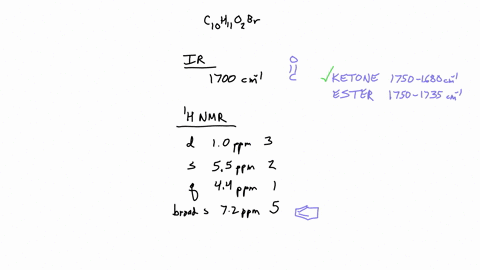 C10H11O2Br
IR
1700 cm-1
O
C
✓KETONE 1750-1680cm-1
ESTER 1750-1735 cm-1
1H NMR
d 1.0 ppm 3
s 5.5 ppm 2
q 4.4 ppm 1
broad s 7.2 ppm 5